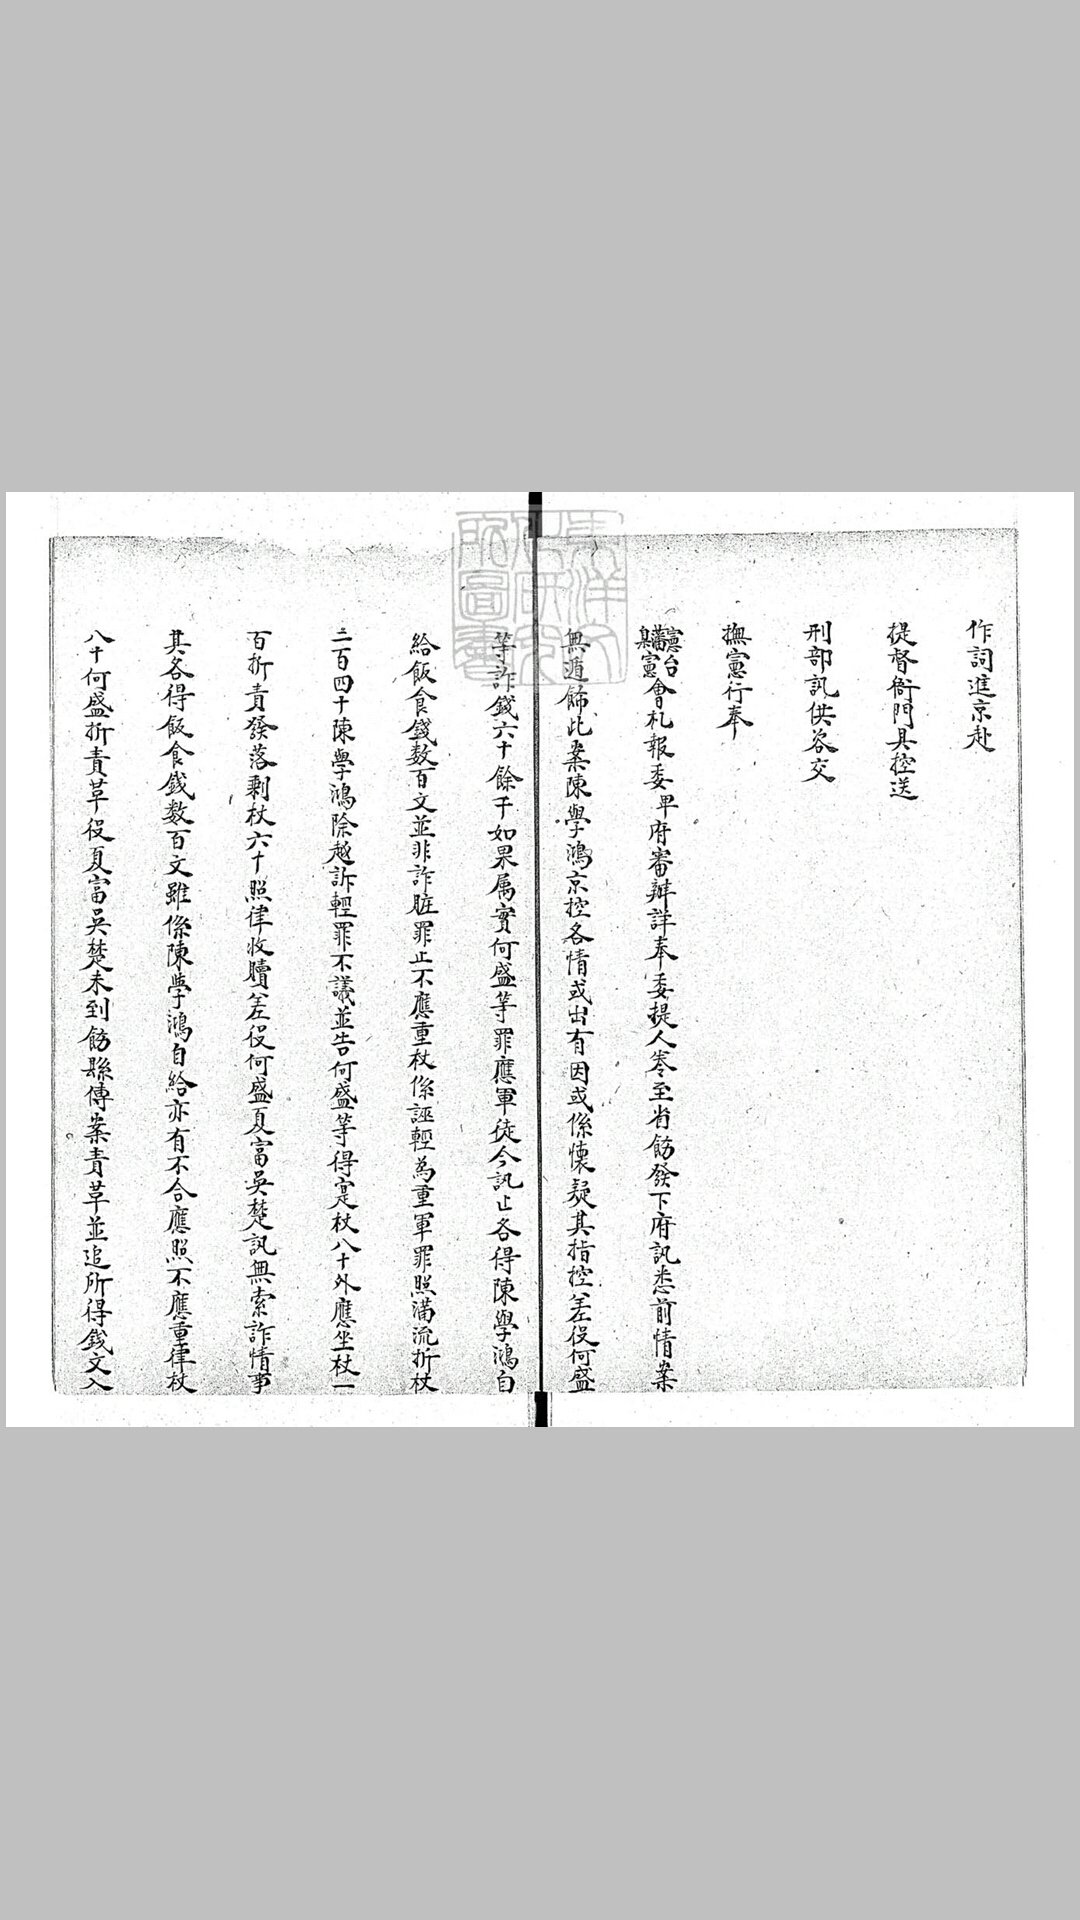 作詞進京赴
提督衙門具控送
刑部訊供咨交
撫憲行奉
憲台
藩
臬憲會札報委卑府審辦詳奉委提人卷至省飭發下府訊悉前情案
無遁飾此案陳學鴻京控各情或出有因或係懷疑其指控差役何盛
等詐錢六十餘千如果属實何盛等罪應軍徒今訊止各得陳學鴻自
給飯食錢数百文並非詐賍罪止不應重杖係誣輕為重軍罪照滿流折杖
二百四十陳學鴻除越訴輕罪不議並告何盛等得寔杖八十外應坐杖一
百折責發落剩杖六十照律收贖差役何盛夏富吳楚訊無索詐情事
其各得飯食錢数百文雖係陳學鴻自給亦有不合應照不應重律杖
八十何盛折責革役夏富吳楚未到飭縣傳案責革並追所得錢文入